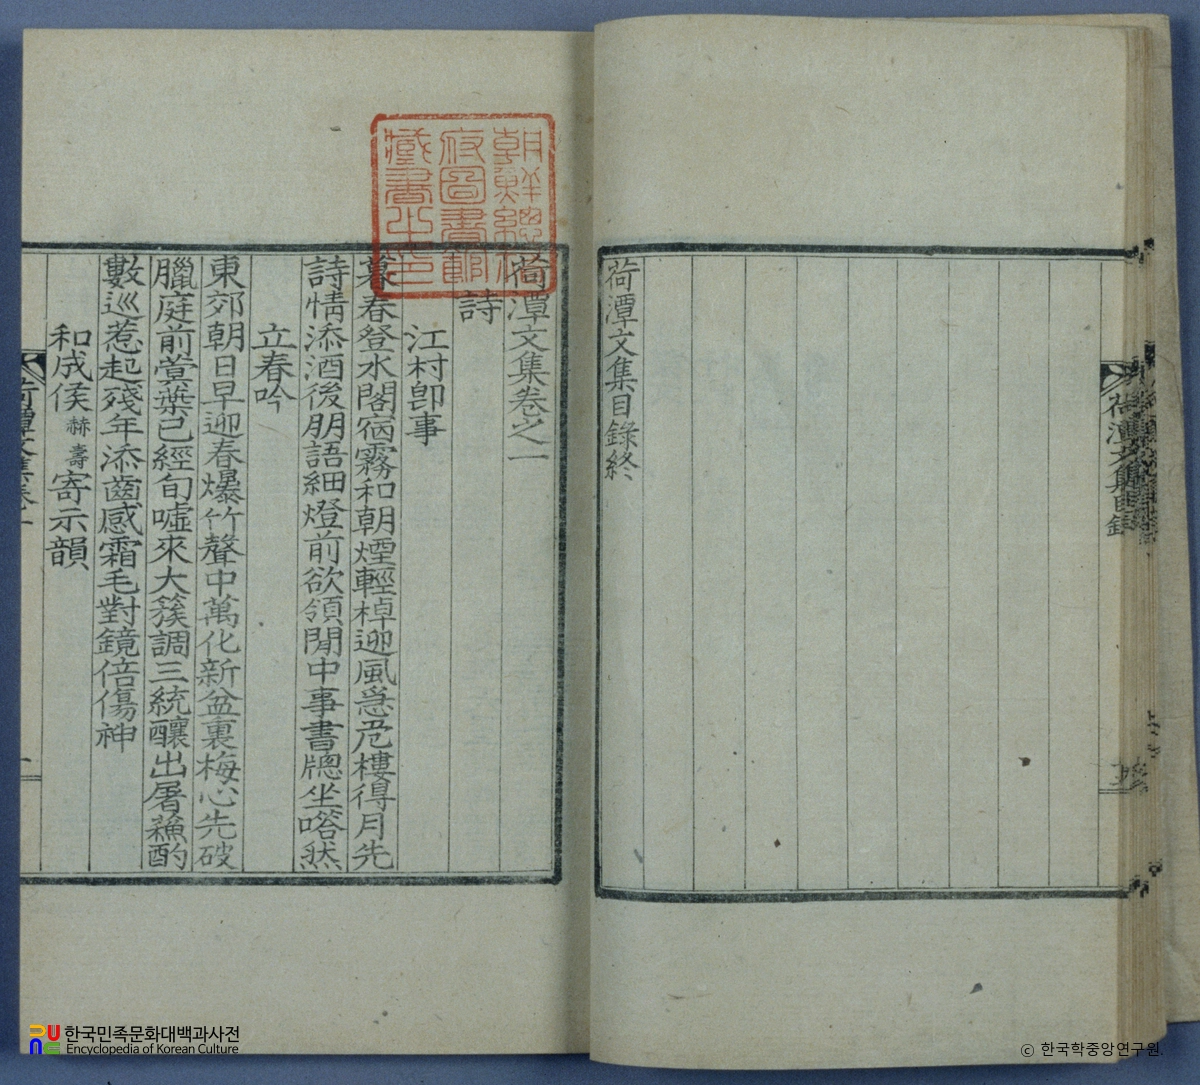 荷潭文集目錄終
荷潭文集目錄
朝鮮總督
府圖書館
藏書之印
荷潭文集卷之一
詩
江村卽事
暮春登水閣宿霧和朝煙輕棹迎風急危樓得月先
詩情添酒後朋語細燈前欲領閒中事書牕坐嗒然
立春吟
東郊朝日早迎春爆竹聲中萬化新盆裏梅心先破
臘庭前蓂葉已經旬噓來大簇調三統釀出屠蘓酌
數巡惹起殘年添齒感霜毛對鏡倍傷神
和成侯赫壽寄示韻
荷潭文集卷一
一
한국민족문화대백과사전
Encyclopedia of Korean Culture
ⓒ 한국학중앙연구원.